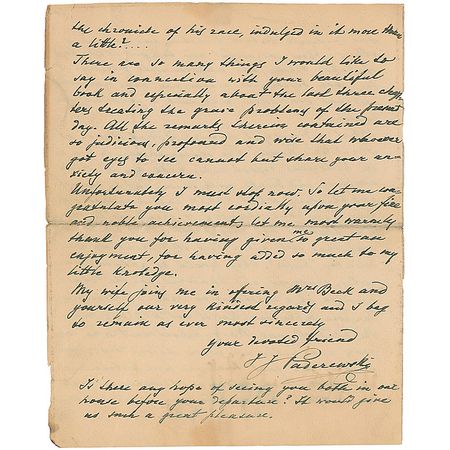 the chronicle of his race, indulged in it more than
a little?....
There are so many things I would like to
say in connection with your beautiful
book and especially about the last three chap-
ters treating the grave problems of the present
day. All the remarks therein contained are
so judicious, profound and wise that whoever
got eyes to see cannot but share your an-
xiety and concern.
Unfortunately I must stop now. So let me con-
gratulate you most cordially upon your fine
and noble achievement, let me most warmly
thank you for having given me so great an
enjoyment, for having added so much to my
little knowledge.
My wife joins me in offering Mrs Beck and
yourself our very kindest regards and I beg
to remain as ever most sincerely
your devoted friend
I J Paderewski
Is there any hope of seeing you both in our
house before your departure? It would give
us such a great pleasure.